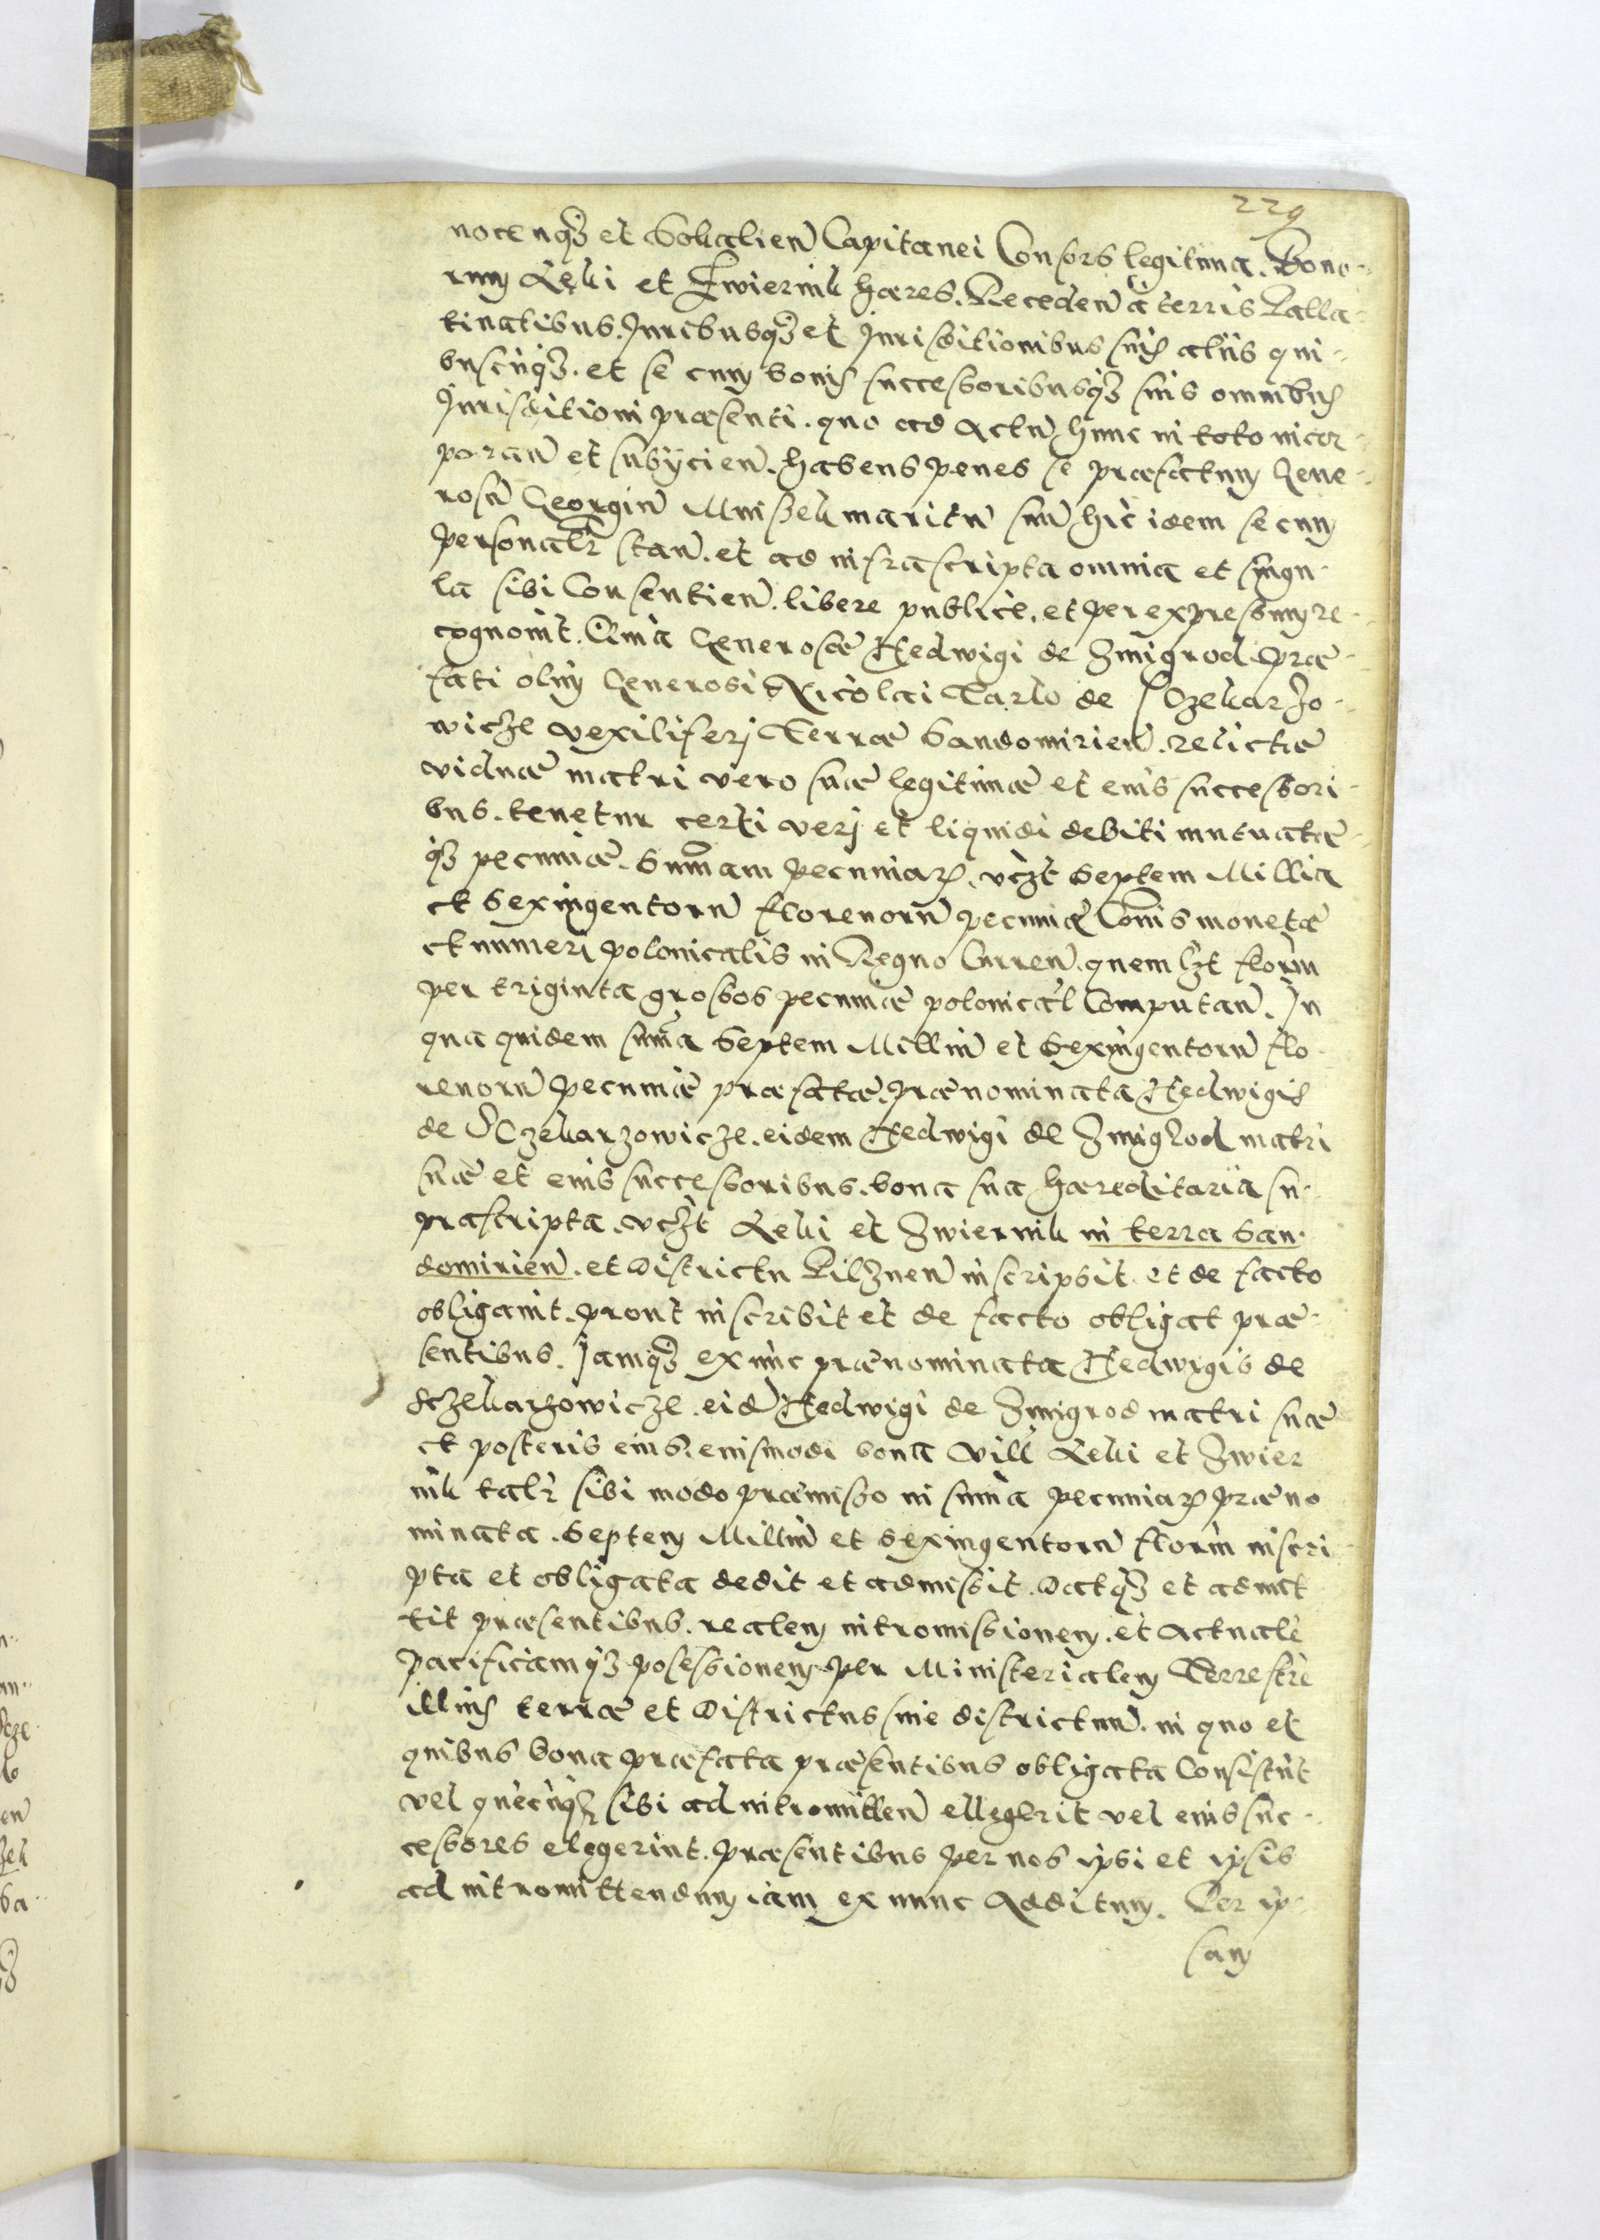 229
nocenqз et Sokalien̄ Capitanei Consors legitima. Bono-
rum Lęki et Zwiernik hæres. Receden̄ à terris Palla-
tinatibus. Juribusqз et Jurisditionibus suis aliis qui-
buscūqз. et se cum bonis successoribusqз suis omnibus
Jurisditioni præsenti. quo ad Actū hunc in toto incor-
poran̄ et subÿcien̄. habens penes se præfatum Gene-
rosū Georgiū Mniszek maritū suū hic idem secum
personalr̄ stan̄. et ad infrascripta omnia et singu-
la sibi Consentien̄. libere publice. et per expressum re-
cognovit. Quia Generosæ Hedwigi de Zmigrod præ-
fati olim Generosi Nicolai Tarlo de Sczekarzo-
wicze vexiliferj Terræ Sandomirien̄. relictæ
viduæ matri vero suæ legitimæ et eius successori-
bus. tenetur certi verj et liquidi debiti mutuatæ-
qз pecuniæ. Sum̄am pecuniar̄. vczt Septem Millia
et Sexingentorū florenorū pecuniæ Com̄is monetæ
et numeri polonicalis in Regno Curren̄. quem lzt florin̄
per triginta grossos pecuniæ polonical̄ Computan̄. In
qua quidem sum̄a Septem Milliū et Sexingentorū flo-
renorū pecuniæ præfatæ. prænominata Hedwigis
de Sczekarzowicze. eidem Hedwigi de Zmigrod matri
suæ et eius successoribus. bona sua hæreditaria su-
prascripta. vczt Lęki et Zwiernik in terra San-
domirien̄. et Districtu Pilznen̄ inscripsit. et de facto
obligavit. prout inscribit et de facto obligat præ-
sentibus. Jamqз ex nūc prænominata Hedwigis de
Sczekarzowicze. eid̄ Hedwigi de Zmigrod matri suæ
et posteris eius. eiusmodi bona vill̄ Lęki et Zwier
nik talr̄ sibi modo præmisso in sum̄a pecuniar̄ præno
minata. Septem Milliū et Sexingentorū florin̄ inscri-
pta et obligata dedit et admissit. datqз et admit
tit præsentibus. realem intromissionem. et actualē
pacificamqз possessionem per Ministerialem Terrestrē
illius terræ et Districtus sive districtuū. in quo et
quibus bona præfata præsentibus obligata Consistūt
vel quēcūqз sibi ad intromitten̄ ellegerit vel eius suc-
cessores elegerint. præsentibus per nos ipsi et ipsis
ad intromittendum iam ex nunc Additum. Per ip-
sam